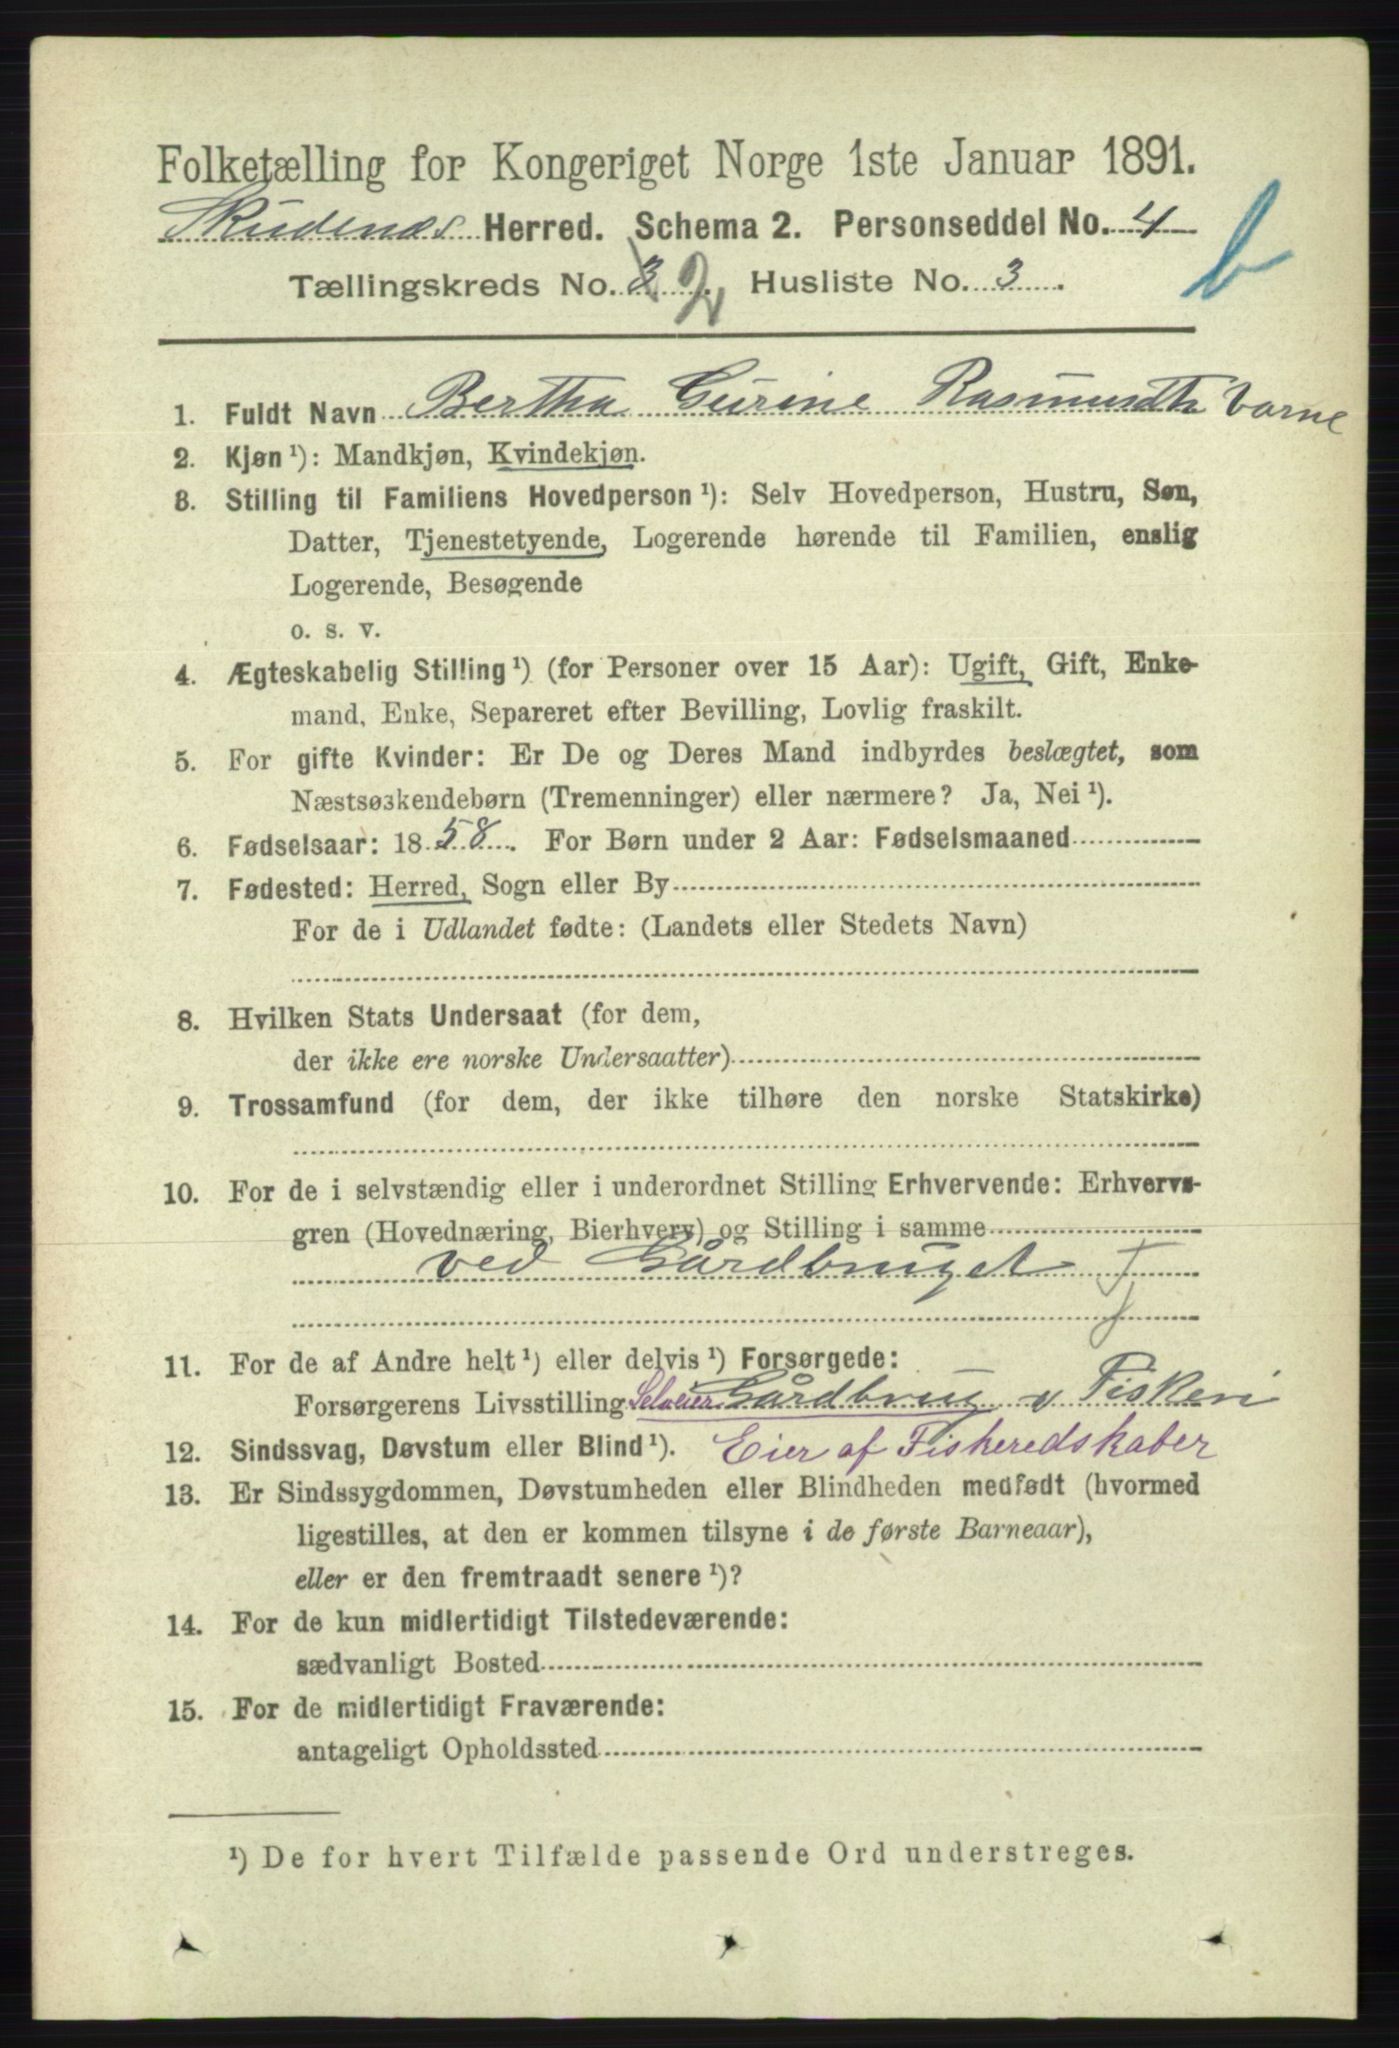 Folketælling for Kongeriget Norge 1ste Januar 1891.
Skudenæs Herred. Schema 2. Personseddel No. 4
b
Tællingskreds No. 3 2. Husliste No. 3.
1. Fuldt Navn Bertha Gurine Rasmusdtr Varne
2. Kjøn ¹): Mandkjøn, Kvindekjøn.
3. Stilling til Familiens Hovedperson ¹): Selv Hovedperson, Hustru, Søn,
Datter, Tjenestetyende, Logerende hørende til Familien, enslig
Logerende, Besøgende
o. s. v.
4. Ægteskabelig Stilling ¹) (for Personer over 15 Aar): Ugift, Gift, Enke-
mand, Enke, Separeret efter Bevilling, Lovlig fraskilt.
5. For gifte Kvinder: Er De og Deres Mand indbyrdes beslægtet, som
Næstsøskendebørn (Tremenninger) eller nærmere? Ja, Nei ¹).
6. Fødselsaar: 1858. For Børn under 2 Aar: Fødselsmaaned
7. Fødested: Herred, Sogn eller By
For de i Udlandet fødte: (Landets eller Stedets Navn)
8. Hvilken Stats Undersaat (for dem,
der ikke ere norske Undersaatter)
9. Trossamfund (for dem, der ikke tilhøre den norske Statskirke)
10. For de i selvstændig eller i underordnet Stilling Erhvervende: Erhvervs-
gren (Hovednæring, Bierhverv) og Stilling i samme
ved Gårdbruget
11. For de af Andre helt ¹) eller delvis ¹) Forsørgede:
Forsørgerens Livsstilling Selveier Gårdbrug v Fiskeri
12. Sindssvag, Døvstum eller Blind ¹). Eier af Fiskeredskaber
13. Er Sindssygdommen, Døvstumheden eller Blindheden medfødt (hvormed
ligestilles, at den er kommen tilsyne i de første Barneaar),
eller er den fremtraadt senere ¹)?
14. For de kun midlertidigt Tilstedeværende:
sædvanligt Bosted
15. For de midlertidigt Fraværende:
antageligt Opholdssted
¹) De for hvert Tilfælde passende Ord understreges.